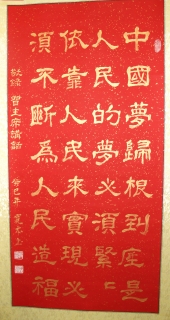 中國夢歸根到底是
人民的夢必須緊〻
依靠人民來實現必
須不斷為人民造福
敬錄習主席講話
癸巳年